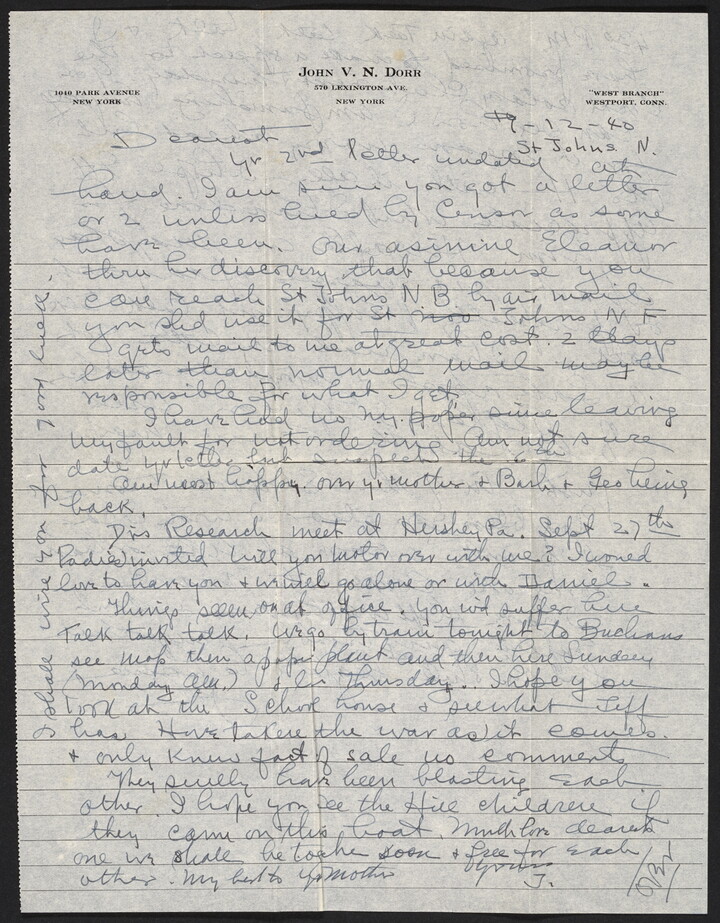 JOHN V. N. DORR
570 LEXINGTON AVE.
NEW YORK
1040 PARK AVENUE
NEW YORK
"WEST BRANCH"
WESTPORT, CONN.
9-12-40
St Johns N.
Dearest
Yr 2nd letter undated at
hand. I am sure you got a letter
or 2 unless held by Censor as some
have been. Our asinine Eleanor
thru her discovery that because you
can reach St Johns N.B. by air mail
you shd use it for St Johns N F
gets mail to me at great cost. 2 days
later than normal mail may be
responsible for what I get
I have had no N.y. paper since leaving
my fault for not ordering Am not sure
date yr letter but suspect the 6th
Am most happy over yr mother + Barb + Geo being
back.
Dirs Research meet at Hershey, Pa. Sept 27th
Ladies invited Will you motor over with me? I would
love to have you + we will go alone or with Daniel.
Things seem on at office. You wd suffer here
Talk talk talk. We go by train tonight to Buchans
see map then a paper plant and then here Sunday
(Monday AM.) Thursday. I hope you
look at the School house + see what Jeff
has. Have taken the war as it comes.
+ only know fact of sale no comments
They surely have been blasting each
other. I hope you see the Hill children if
they came on this boat. Much love dearest
one we shall be together soon + free for each
other. My best to yr Mother
Yours
J.
over
I shall wire you for your luck.